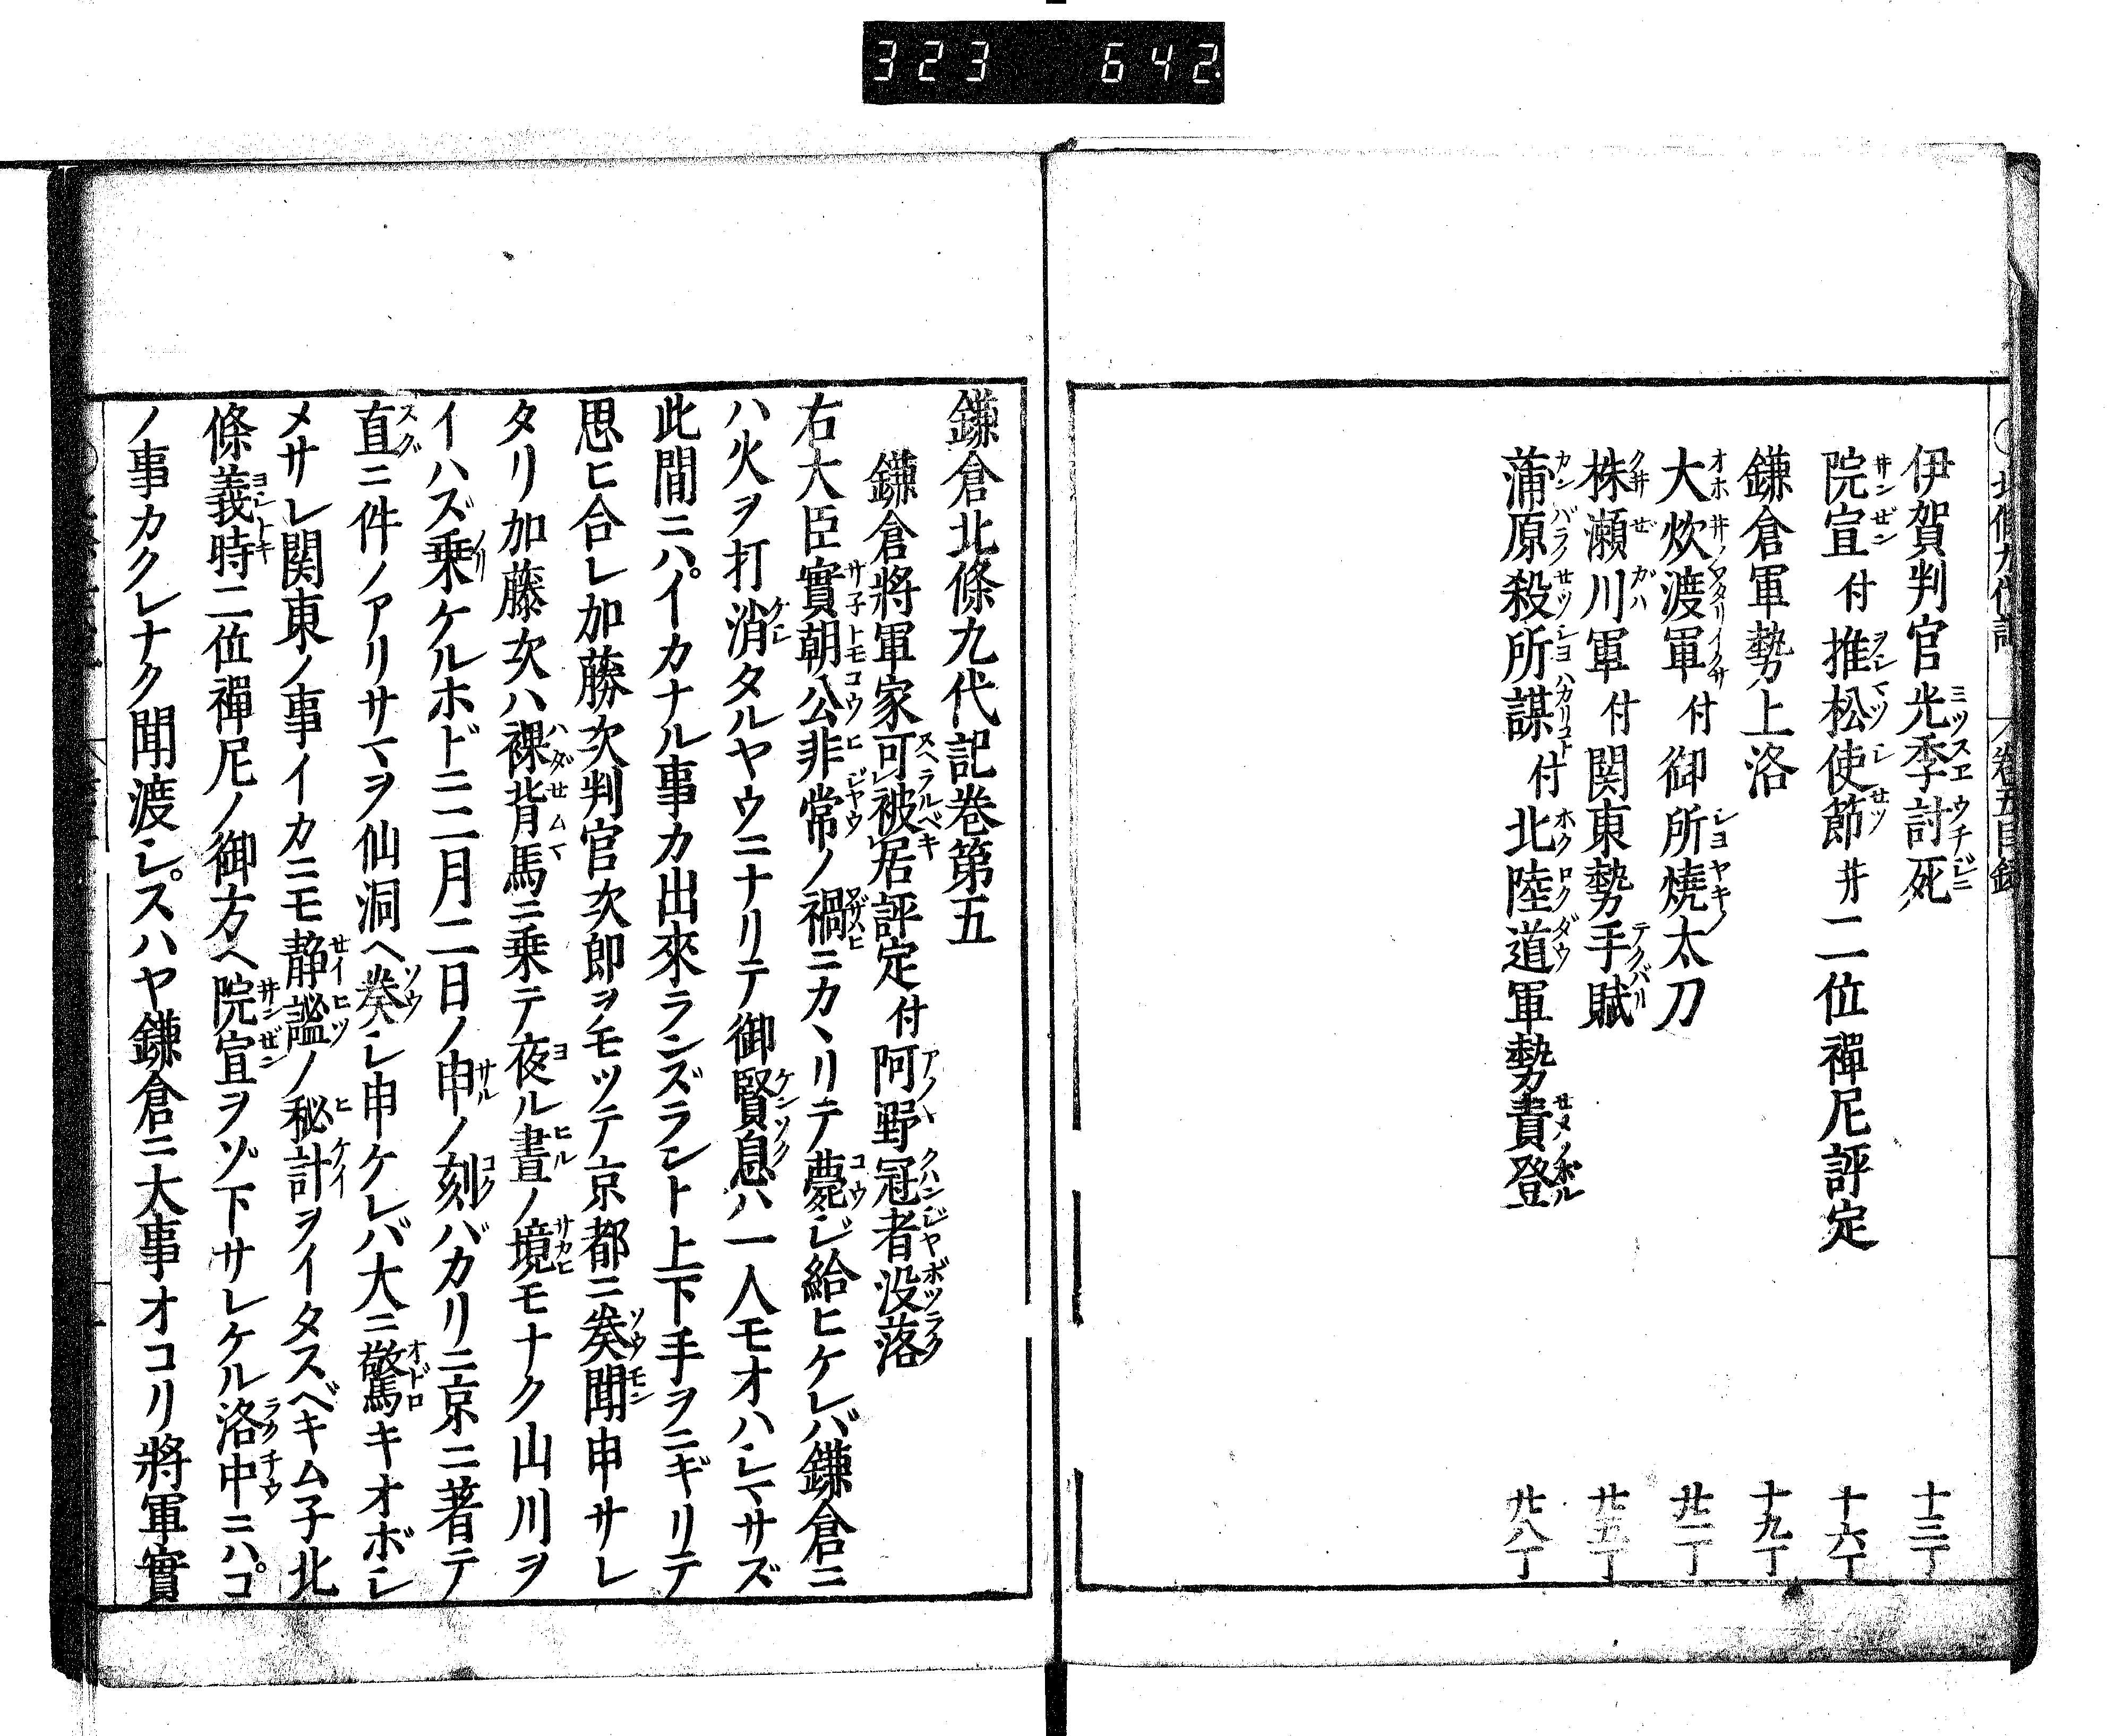 323 642
伊賀判官光季討死 十三丁
院宣付推松使節并二位禪尼評定 十六丁
鎌倉軍勢上洛 十九丁
大炊渡軍付御所燒太刀 廿二丁
株瀬川軍付関東勢手賦 廿五丁
蒲原殺所謀付北陸道軍勢責登 廿八丁
鎌倉北條九代記巻第五
鎌倉將軍家可被居評定付阿野冠者没落
右大臣實朝公非常ノ禍ニカヽリテ薨ジ給ヒケレバ鎌倉ニ
ハ火ヲ打消タルヤウニナリテ御賢息ハ一人モオハシマサズ
此間ニハイカナル事カ出來ランズラント上下手ヲニギリテ
思ヒ合レ加藤次判官次郎ヲモツテ京都ニ奏聞申サレ
タリ加藤次ハ裸背馬ニ乗テ夜ル晝ノ境モナク山川ヲ
イハズ乗ケルホドニ二月二日ノ申ノ刻バカリニ京ニ著テ
直ニ件ノアリサマヲ仙洞ヘ奏シ申ケレバ大ニ驚キオボシ
メサレ関東ノ事イカニモ静謐ノ秘計ヲイタスベキム子北
條義時二位禪尼ノ御方ヘ院宣ヲゾ下サレケル洛中ニハコ
ノ事カクレナク聞渡シスハヤ鎌倉ニ大事オコリ將軍實